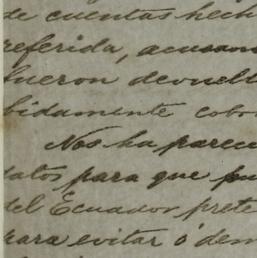 de cuentas hech
referida, acusam
fueron devuelt
bidamente cobr
Nos ha parecı
datos para que pu
del Ecuador prete
para evitar ó dem